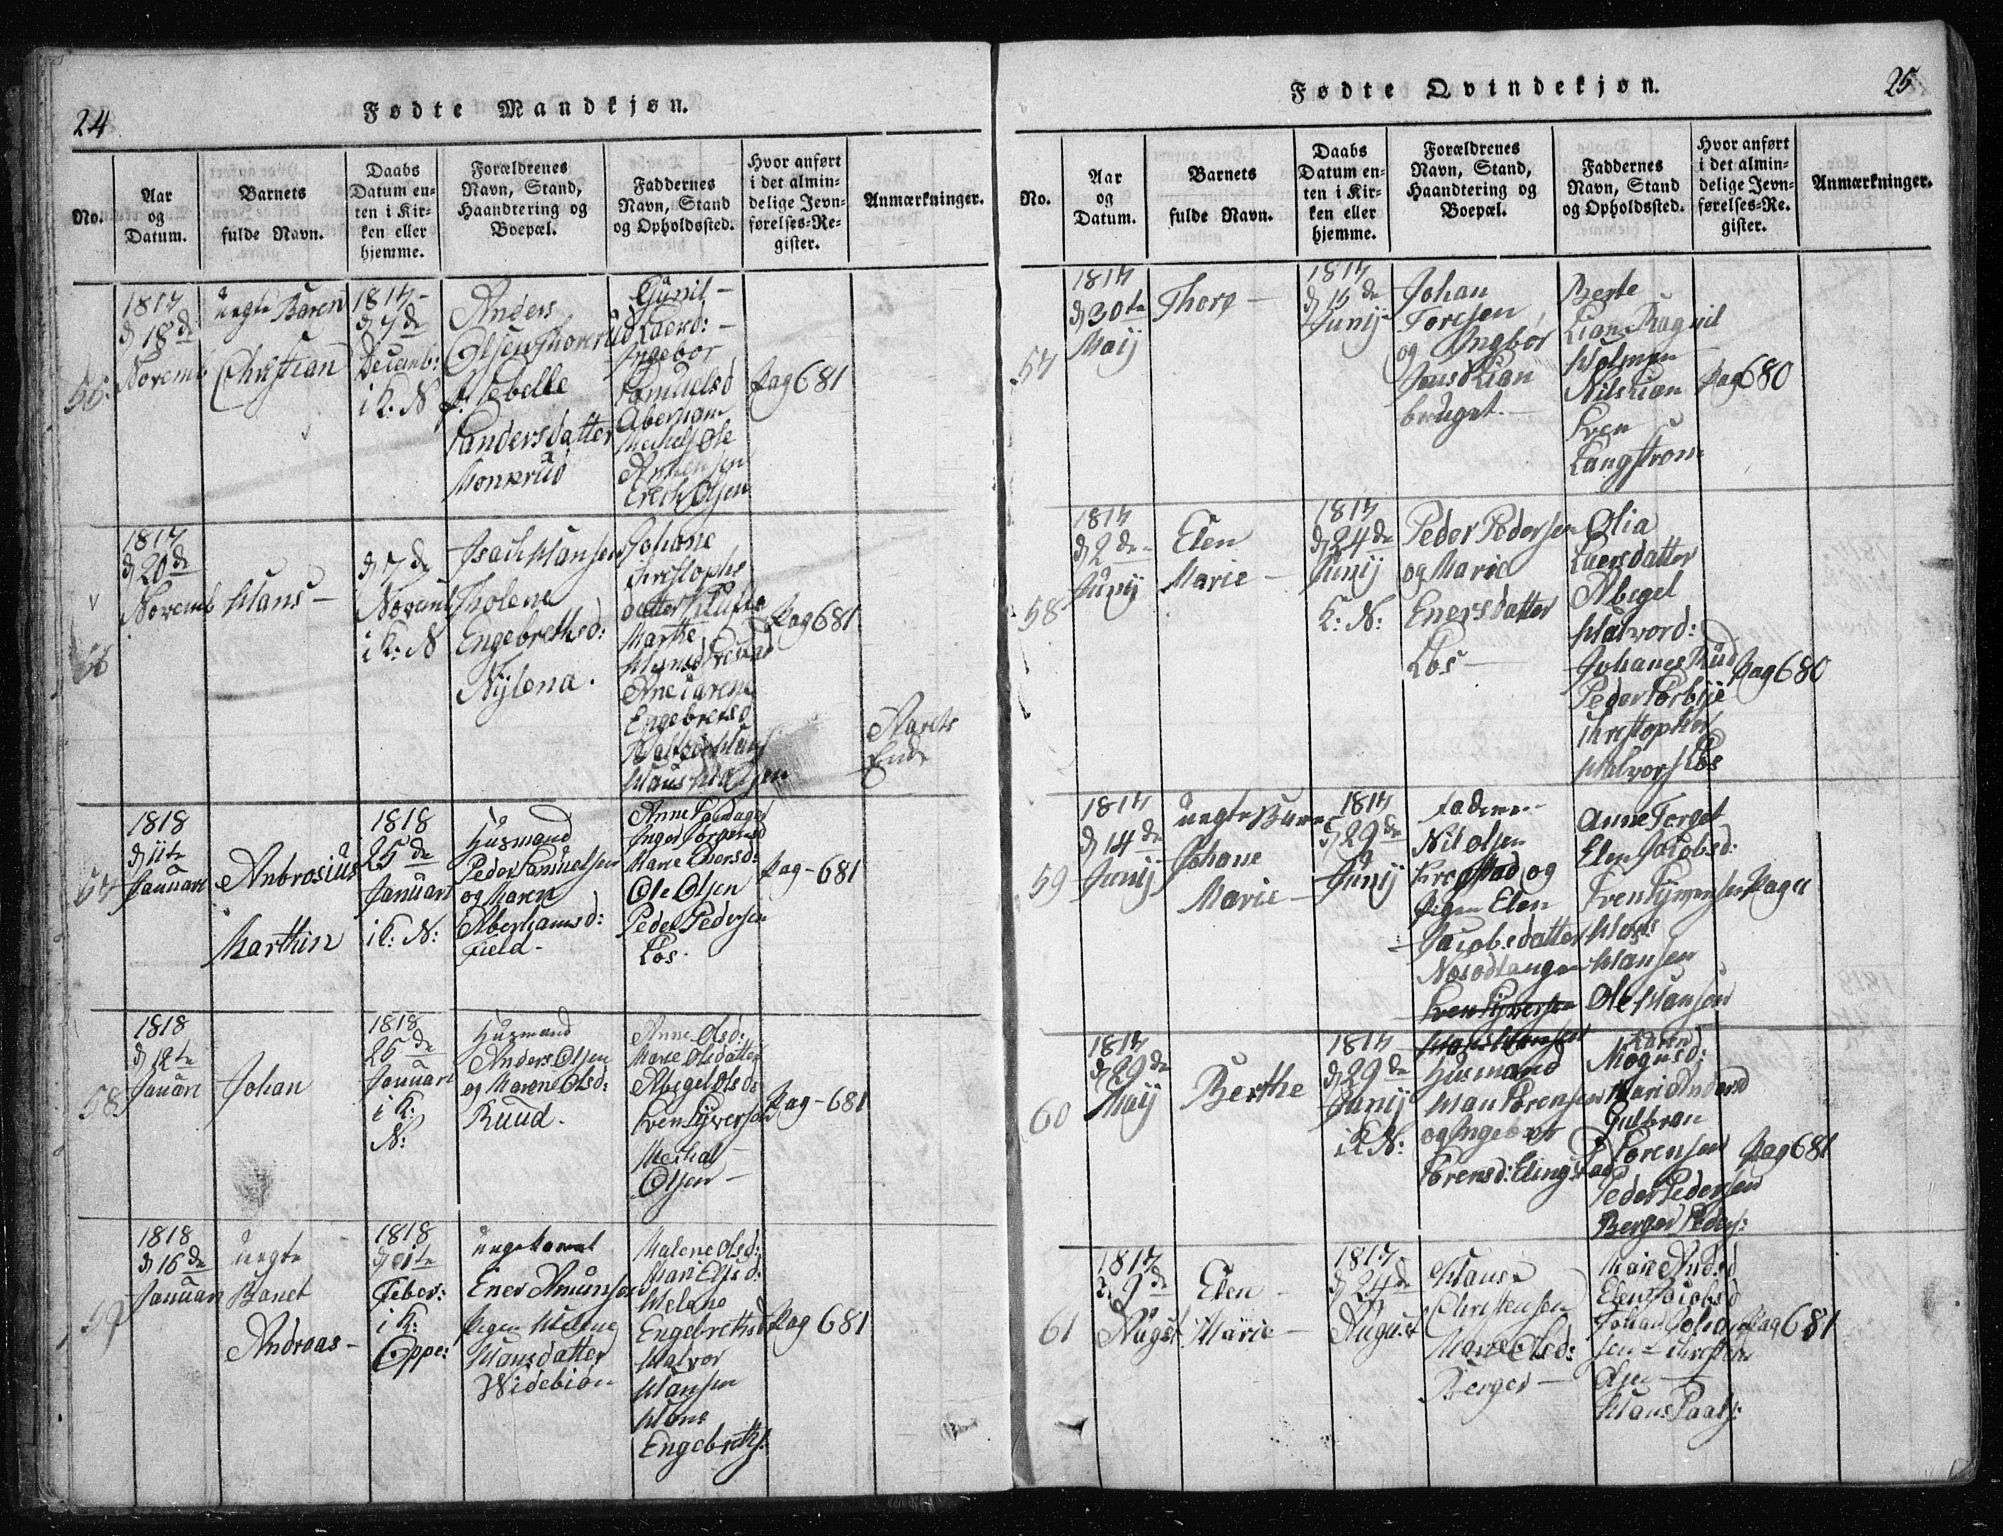 24
Fødte Mandkjøn.
No.
Aar
og
Datum.
Barnets
fulde Navn.
Daabs
Datum en-
ten i Kir-
ken eller
hjemme.
Forældrenes
Navn, Stand,
Haandtering og
Boepæl.
Faddernes
Navn, Stand
og Opholdssted.
Hvor anført
i det almin-
delige Jevn-
førelses-Re-
gister.
Anmærkninger.
55.
1817
d 18de
Novemb
uegte Baren
Christian
1817
d 7de
Decemb:
i K: N
Anders
Olsen Thorerud
p. Sebelle
Sandersdatter
Monkrud
Gunil
Laerd:
Ingebor
Samuelsd
Abersam
Mechel Ole
Erich Olsen
Pag 681
56
1817
d 20de
Novemb
Hans
d 7de
Novemb
i K: N
Isach Hansen
Tholena
Engebrethsd:
Nylena.
Johane
Christophe
datter
Marthe
Ane Carene
Engebretsd
Pag 681
Aarets
Ende
57
1818
d 11te
Januari
Ambrosius
Marthin
1818
25de
Januari
i K: N:
Husmand
Peder Samuelsen
og Maren
Aberhamsd:
Field
Inger Jorgensd
Marie Enersd:
Ole Olsen
Peder Pedersen
Løs.
Pag 681
58
1818
d 12te
Januari
Johan
1818
25de
Januari
i K:
N:
Husmand
Anders Olsen
og Marene Olsd:
Ruud.
Anne Olsd:
Marie Olsdatter
Abegel Olsd
Sven Syversen
Mechal
Olsen
Pag 681
59
1818
d 16de
Januari
uegte
Banet
Andreas
1818
d 1te
Feber:
i K:
Oppe:
ungekarl
Ener Amunsen
Pigen Helene
Hansdatter
Widebion
Malene Olsd:
Mari Elsd:
Helene
Engebrethsd
Halvor
Hansen
Hans
Engebreths:
Pag 681
25
Fødte Qvindekjøn.
No.
Aar
og
Datum.
Barnets
fulde Navn.
Daabs
Datum en-
ten i Kir-
ken eller
hjemme.
Forældrenes
Navn, Stand,
Haandtering og
Boepæl.
Faddernes
Navn, Stand
og Opholdssted.
Hvor anført
i det almin-
delige Jevn-
førelses-Re-
gister.
Anmærkninger.
57
1817
d 30te
Maij
Thore
1817
d 15de
Junij
Johan
Toresen
og Ingbor
Jensd Lian
bruget.
Berte
Lian Ragnil
Halmen
Nils Lian
Sven
Langstrom
Pag 680
58
1817
d 2de
Junij
Elen
Marie
1817
d 24de
Junij
K: N:
Peder Pedersen
og Marie
Enersdatter
Løs
Olia
Laersdatter
Abegel
Halvord:
Johanes Rud
Peder Torbye
Christopher
Halvors Løs
Pag 680
59
1817
d 14de
Junij
uegte Barn
Johane
Marie
1817
d 29de
Junij
Faderen
Nil Olsen
Kirgstad og
Pigen Elen
Jacobsdatter
Næsodtangen
Sven Syversen
Hans Hansen
Anne Torget
Elen Jacobsd:
Sven Syversen
Hans
Hansen
Ole Hansen
60
1817
d 29de
Maij
Berthe
1817
d 29de
Junij
i K: N:
Husmand
Han Sorensen
og Ingebor
Sorensd: Elingstad
Karen
Mognsd:
Mari Andersd
Gulbran
Sorensen
Peder Pedersen
Berger Peders:
Pag 681
61
1817
d 9de
August
Elen
Marie
1817
d 24de
August
Hans
Christensen
Maree Olsd:
Berger
Marie Andsd
Elen Jacobsd
Johan
sen Christen
Olsen
Hans Paals:
Pag 681